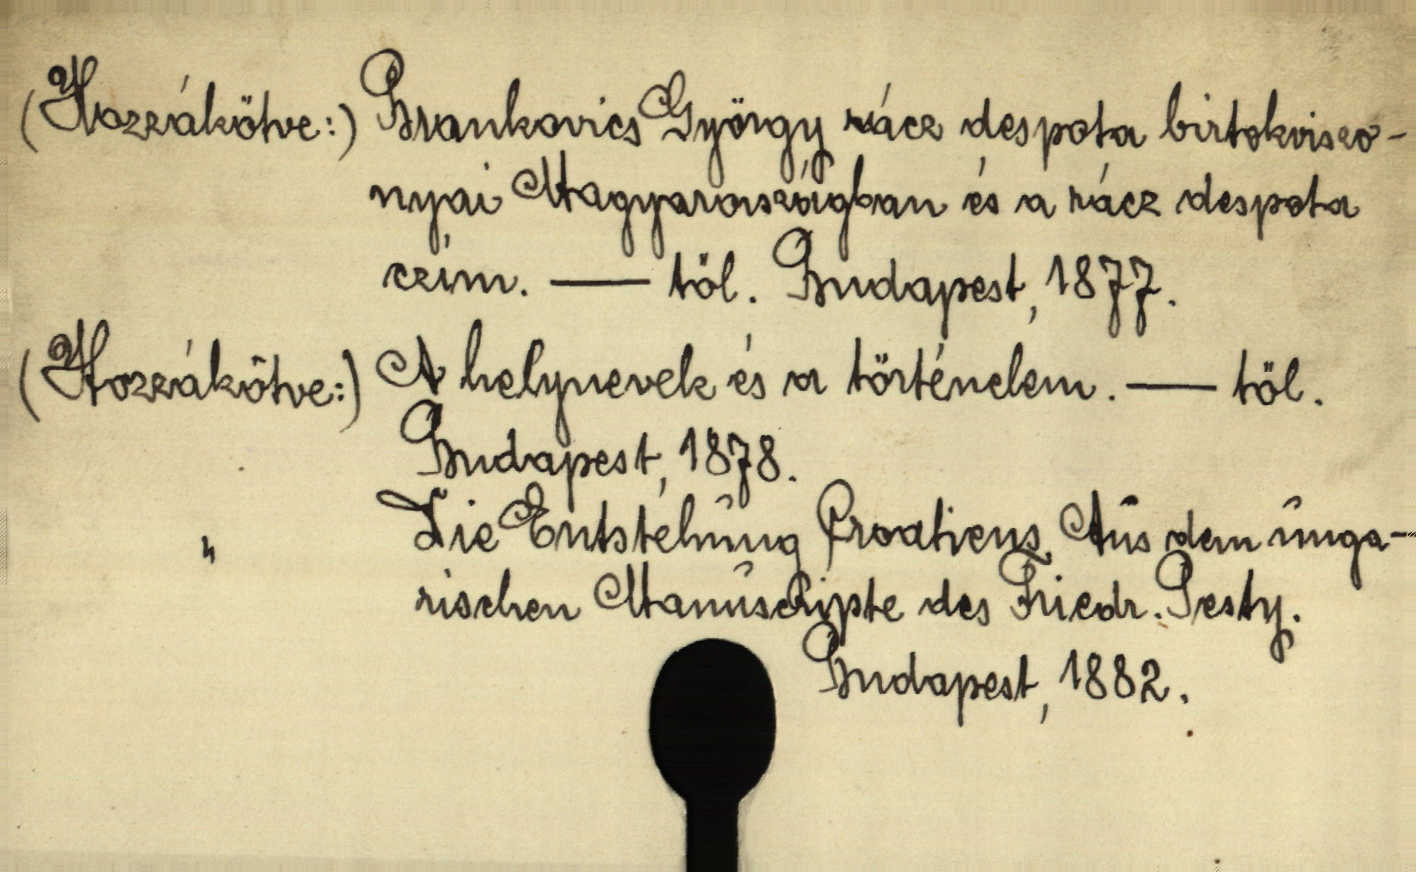 (Hozzákötve:) Brankovics György rácz despota birtokviszo-
nyai Magyarországban és a rácz despota
czim. — től. Budapest, 1877.
(Hozzákötve:) A helynevek és a történelem. — től.
Budapest, 1878.
" Die Entstehung Croatiens. Aus dem unga-
rischen Manuscripte des Friedr. Pesty.
Budapest, 1882.